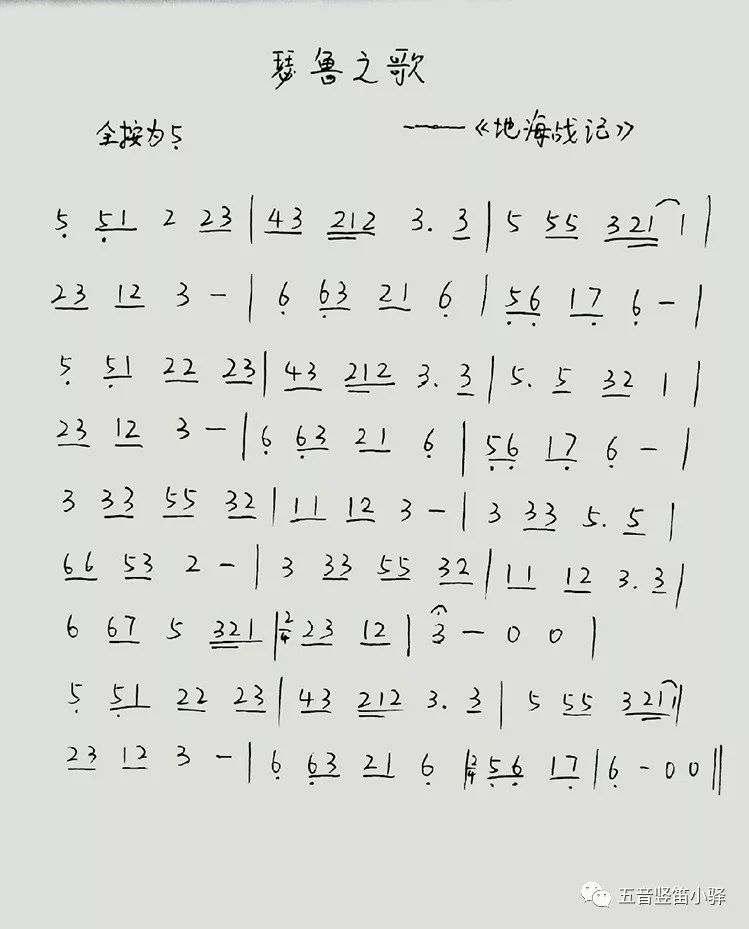 瑟鲁之歌
全按为5̣
——《地海战记》
5̣ 5̣1 2 23 | 43 212 3. 3 | 5 55 321 1 |
23 12 3 - | 6̣ 6̣3 21 6̣ | 5̣6̣ 17̣ 6̣ - |
5̣ 5̣1 22 23 | 43 212 3. 3 | 5. 5 32 1 |
23 12 3 - | 6̣ 6̣3 21 6̣ | 5̣6̣ 17̣ 6̣ - |
3 33 55 32 | 11 12 3 - | 3 33 5. 5 |
66 53 2 - | 3 33 55 32 | 11 12 3. 3 |
6 67 5 321 | 2/4 23 12 | 3 - 0 0 |
5̣ 5̣1 22 23 | 43 212 3. 3 | 5 55 3211 ||
23 12 3 - | 6̣ 6̣3 21 6̣ | 2/4 5̣6̣ 17̣ | 6̣ - 0 0 ||
五音竖笛小驿